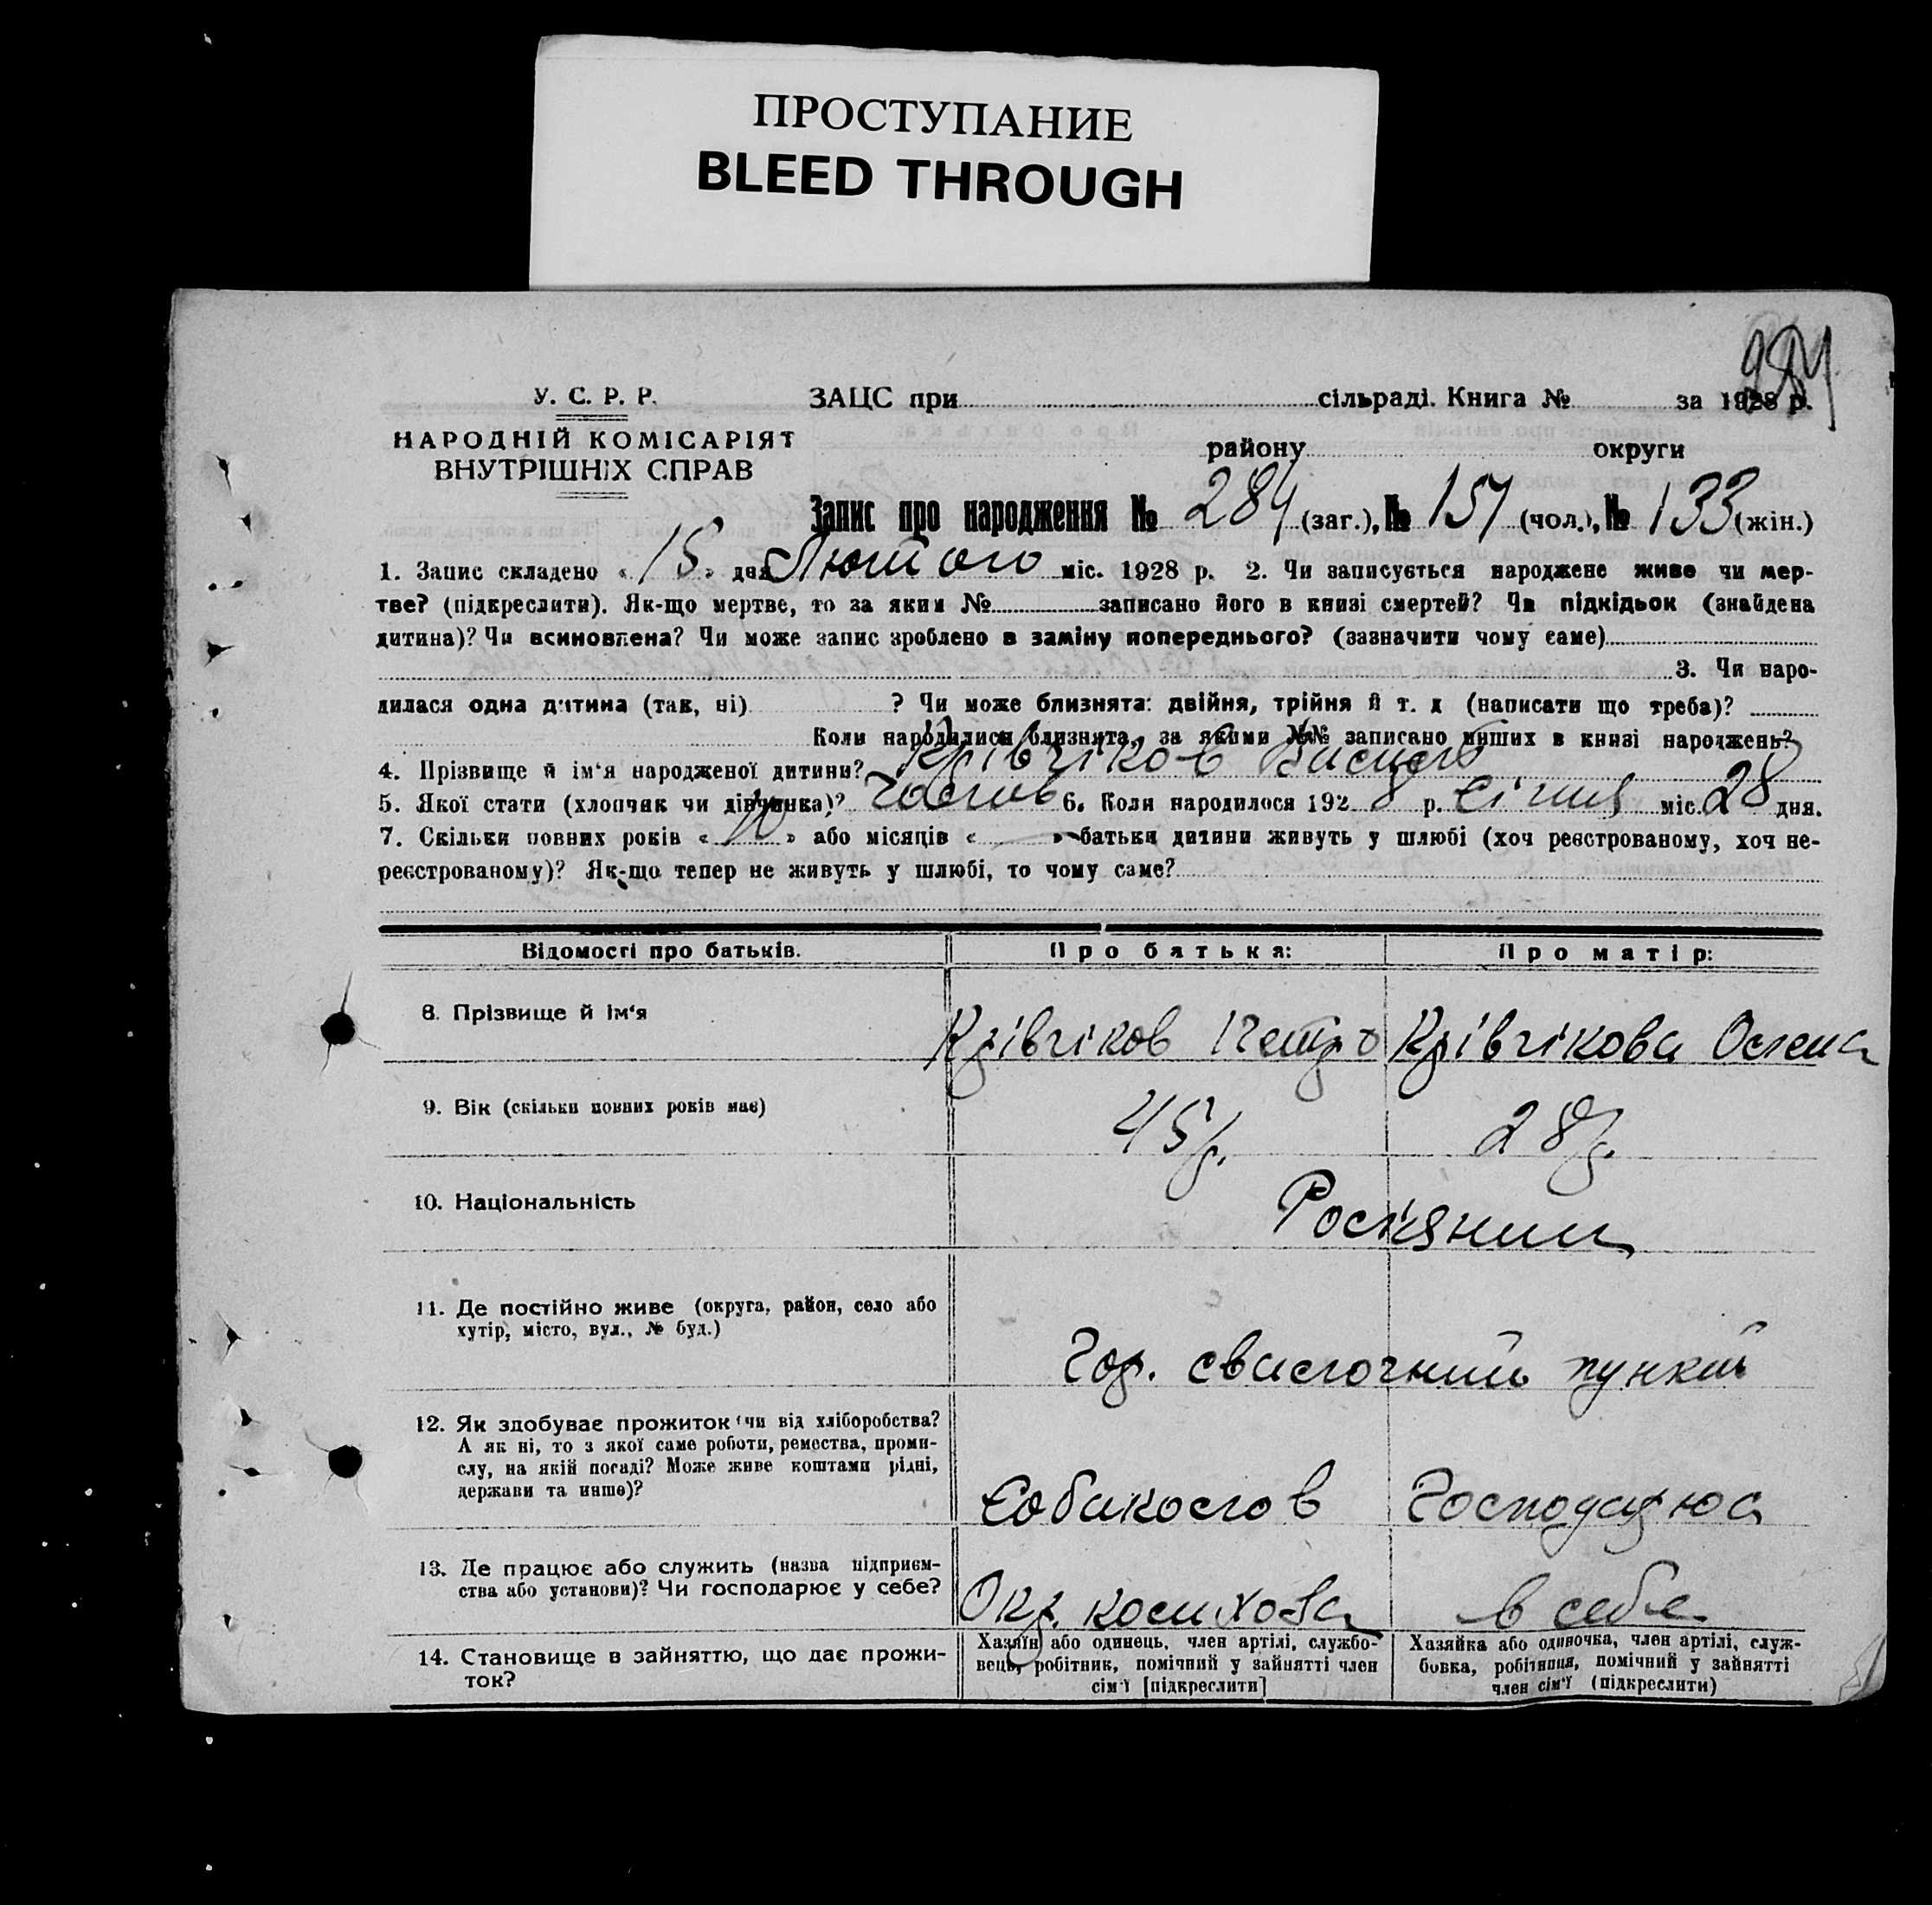 ПРОСТУПАНИЕ
BLEED THROUGH
284
У. С. Р. Р.
НАРОДНІЙ КОМІСАРІЯТ
ВНУТРІШНІХ СПРАВ
ЗАЦС при сільраді. Книга № за 1928 р.
району округи
Запис про народження № 284 (заг.), № 151 (чол.), № 133 (жін.)
1. Запис складено « 15 » дня Лютого міс. 1928 р. 2. Чи записується народжене живе чи мер-
тве? (підкреслити). Як-що мертве, то за яким № записано його в книзі смертей? Чи підкідьок (знайдена
дитина)? Чи всиновлена? Чи може запис зроблено в заміну попереднього? (зазначити чому саме)
3. Чи наро-
дилася одна дитина (так, ні) ? Чи може близнята: двійня, трійня й т. д (написати що треба)?
Коли народилися близнята, за якими №№ записано инших в книзі народжень?
4. Прізвище й ім'я народженої дитини? Крівчіков
5. Якої стати (хлопчик чи дівчинка)? Чолов 6. Коли народилося 1928 р. Січня міс. 28 дня.
7. Скільки повних років « 10 » або місяців « » батьки дитини живуть у шлюбі (хоч реєстрованому, хоч не-
реєстрованому)? Як-що тепер не живуть у шлюбі, то чому саме?
Відомості про батьків. Про батька: Про матір:
8. Прізвище й ім'я Крівчіков Петро Крівчікова Олена
9. Вік (скільки повних років має) 45 р. 28 р.
10. Національність Росіяни
11. Де постійно живе (округа, район, село або
хутір, місто, вул., № буд.)
Гор. свалочний пункт
12. Як здобуває прожиток (чи від хліборобства?
А як ні, то з якої саме роботи, ремества, проми-
слу, на якій посаді? Може живе коштами рідні,
держави та инше)?
Собаколов Господарює
13. Де працює або служить (назва підприєм-
ства або установи)? Чи господарює у себе?
Окр. в себе
14. Становище в зайняттю, що дає прожи-
ток?
Хазяїн або одинець, член артілі, службо-
вець, робітник, помічний у зайнятті член
сім'ї [підкреслити]
Хазяйка або одиночка, член артілі, служ-
бовка, робітниця, помічний у зайнятті
член сім'ї (підкреслити)